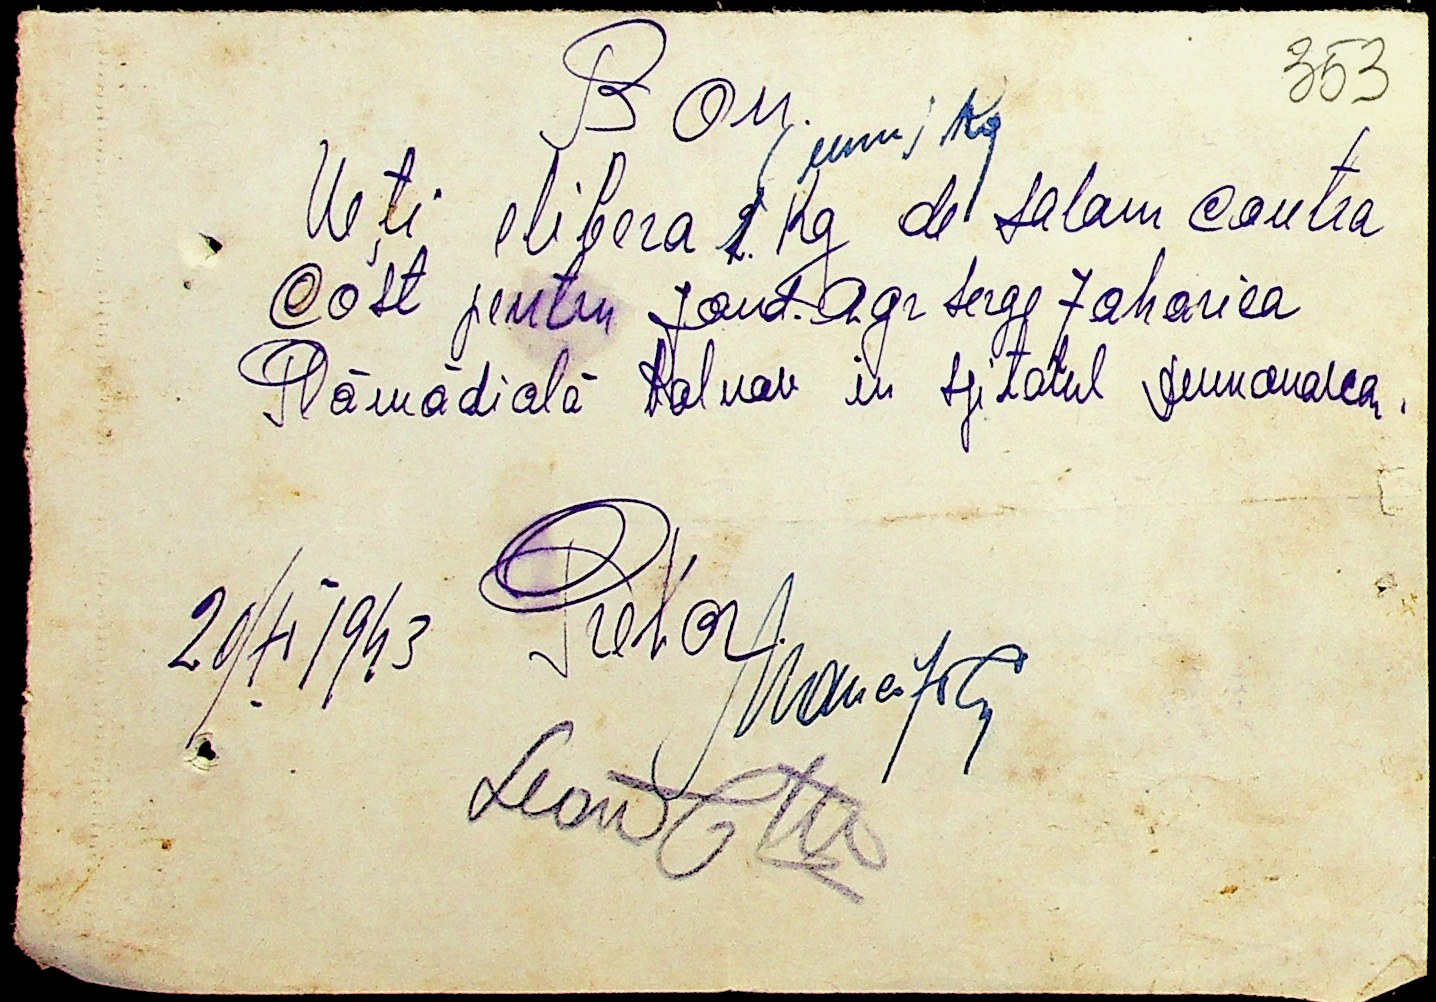 353
Bon.
(unu) Kg
Veți elibera 1. Kg de salam contra
Cost pentru Jand. Agr Serge Zaharica
Plămădială bolnav in spitalul
20/XI 1943 Pretor
Leon